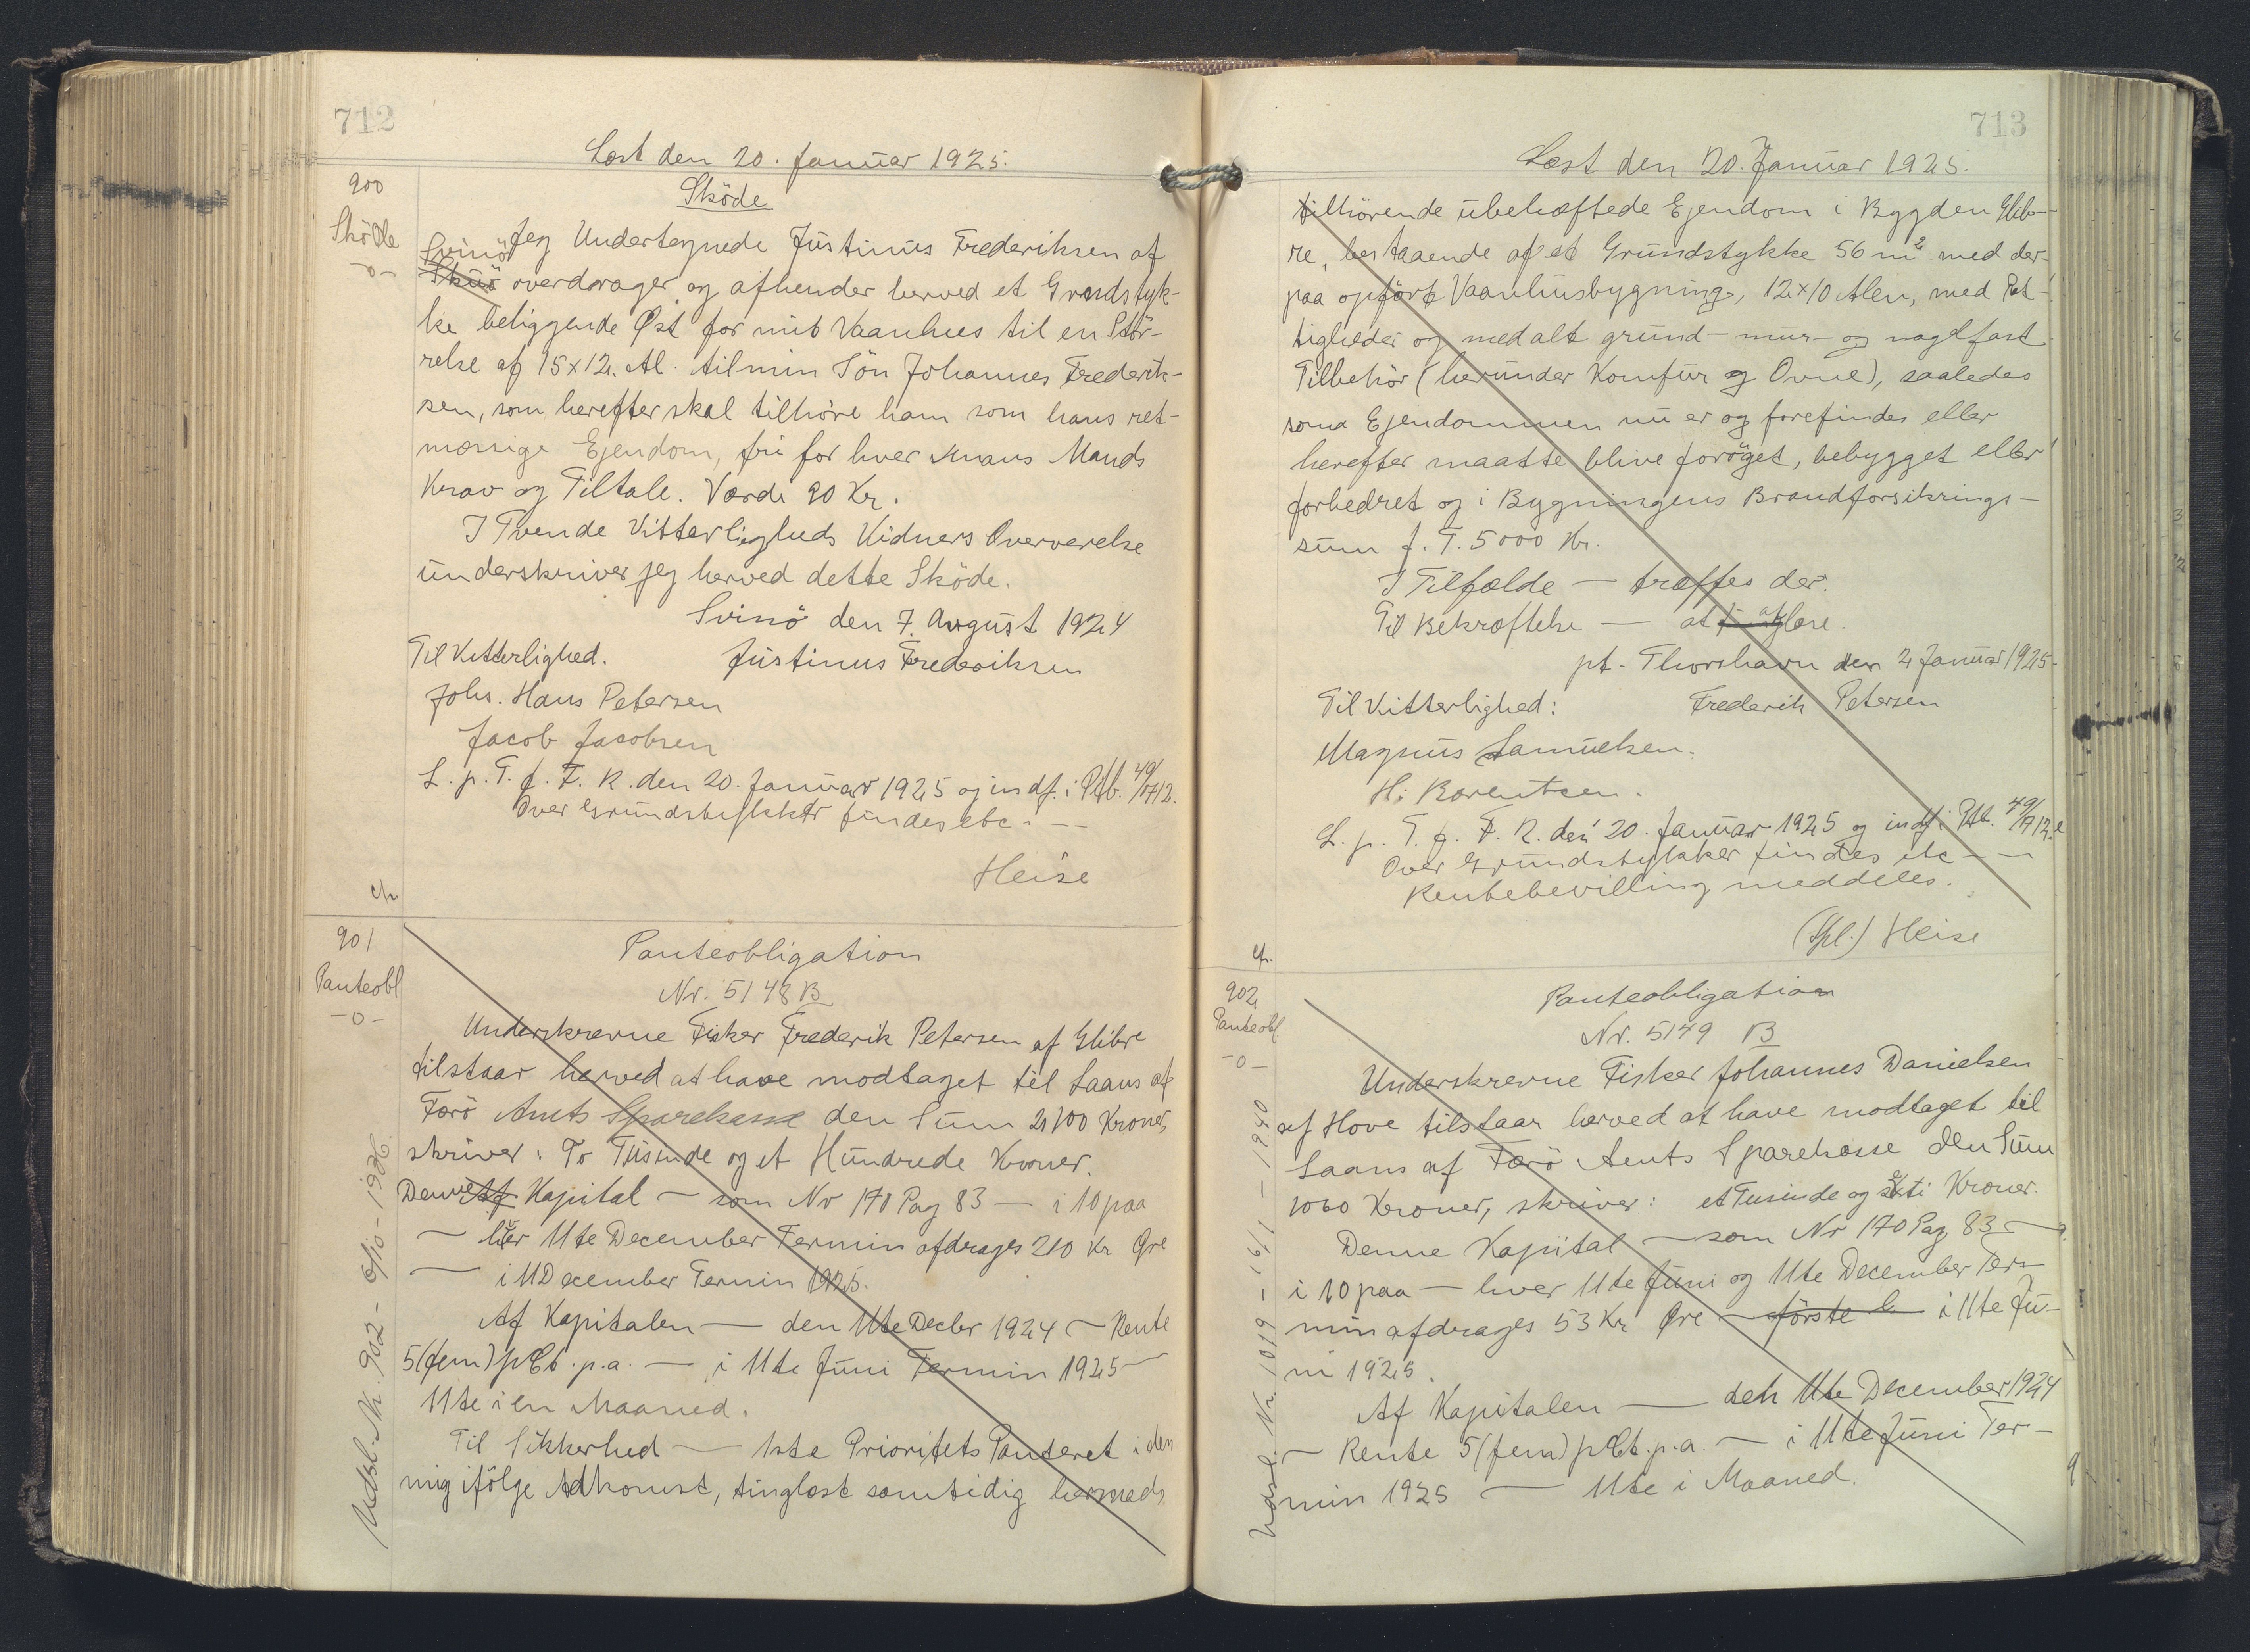 712
Læst den 20. Januar 1925.
900
Sköde
-o-
Sköde
Jeg Undertegnede Justinus Frederiksen af
Svinö
Skuö overdrager og afhender herved et Grundstyk-
ke beliggende Øst for mit Vaanhus til en Stör-
relse af 15x12 Al. til min Sön Johannes Frederik-
sen, som herefter skal tilhöre ham som hans ret-
mæssige Ejendom, fri for hver Mans Mands
Krav og Tiltale. Værdi 90 Kr.
I Tvende Vitterligheds Vidners Overværelse
underskriver jeg herved dette Sköde.
Svinö den 7. August 1924
Til Vitterlighed.
Justinus Frederiksen
Johs. Hans Petersen
Jacob Jacobsen
L. p. T. f. F. R. den 20. Januar 1925 og indf. i Ptb. 49/712.
Over Grundstykket findes etc. --
Heise
cfr
901
Panteobl
-o-
Panteobligation
Nr. 5148 B
Underskrevne Fisker Frederik Petersen af Glibre
tilstaar herved at have modtaget til Laans af
Færö Amts Sparekasse den Sum 2100 Kroner,
skriver: To Tusinde og et Hundrede Kroner.
Denne Af Kapital — som Nr 170 Pag 83 — i 10 paa
— hver 11te December Termin afdrages 210 Kr Øre
— i 11 December Termin 1925.
Af Kapitalen — den 11te Decbr 1924 — Rente
5(fem) pCt. p.a. — i 11te Juni Termin 1925 —
11te i en Maaned.
Til Sikkerhed — 1ste Prioritets Panteret i den
mig ifölge Adkomst, tinglæst samtidig hermed,
713
Læst den 20. Januar 1925.
tilhörende ubehæftede Ejendom i Bygden Glib-
re, bestaaende af et Grundstykke 56 m2 med der-
paa opfört Vaanhusbygning, 12x10 Alen, med Ret-
tigheder og med alt grund- mur- og nagelfast
Tilbehör (herunder Komfur og Ovne), saaledes
som Ejendommen nu er og forefindes eller
herefter maatte blive foröget, bebygget eller
forbedret og i Bygningens Brandforsikrings-
sum f. T. 5000 Kr.
I Tilfælde — træffes der.
Til Bekræftelse — at aflæse.
pt. Thorshavn den 2 Januar 1925.
Til Vitterlighed:
Frederik Petersen
Magnus Samuelsen.
H. Borentsen.
L. p. T. f. F. R. den 20. Januar 1925 og indf. i Ptb. 49/712.
Over Grundstykket findes etc —
Rentebevilling meddeles.
(Gbl.) Heise
cfr.
902
Panteobl
-o-
Panteobligation
Nr. 5149 B
Underskrevne Fisker Johannes Danielsen
af Hove tilstaar herved at have modtaget til
Laans af Færö Amts Sparekasse den Sum
1060 Kroner, skriver: et Tusinde og seksti Kroner.
Denne Kapital — som Nr 170 Pag 83 —
i 10 paa — hver 11te Juni og 11te December Ter-
min afdrages 53 Kr Øre — förste — i 11te Ju-
ni 1925.
Af Kapitalen — den 11te December 1924
— Rente 5(fem) pCt. p.a. — i 11te Juni Ter-
min 1925 — 11te i Maaned.